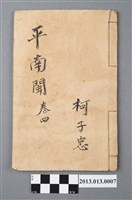 平南闹
卷四
柯子忠
2013.013.0007